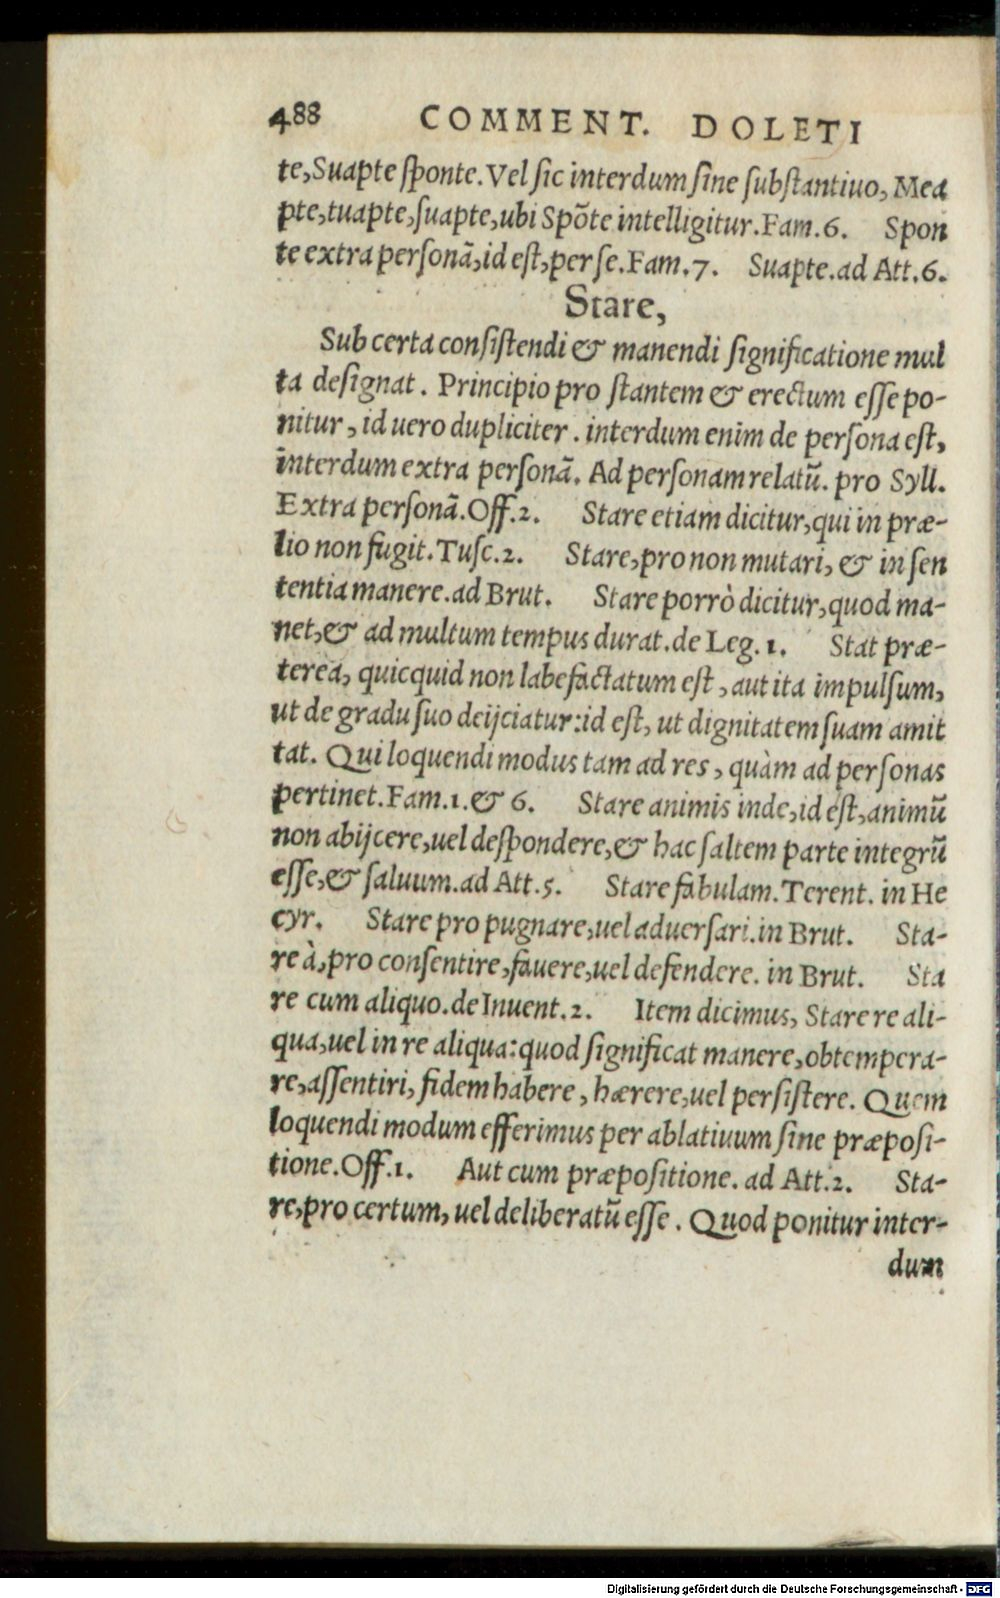 488 COMMENT. DOLETI
te,Suapte ſponte.Vel ſic interdum ſine ſubſtantiuo, Mea
pte,tuapte,ſuapte,ubi Spõte intelligitur.Fam.6. Spon
te extra perſonã,id eſt,per ſe.Fam.7. Suapte.ad Att.6.
Stare,
Sub certa conſiſtendi & manendi ſignificatione mul
ta deſignat. Principio pro ſtantem & erectum eſſe po-
nitur, id uero dupliciter. interdum enim de perſona eſt,
interdum extra perſonã. Ad perſonam relatũ. pro Syll.
Extra perſonã.Off.2. Stare etiam dicitur,qui in præ-
lio non fugit.Tuſc.2. Stare,pro non mutari, & in ſen
tentia manere.ad Brut. Stare porrò dicitur,quod ma-
net,& ad multum tempus durat.de Leg.1. Stat præ-
terea, quicquid non labefactatum eſt, aut ita impulſum,
ut de gradu ſuo deijciatur:id eſt, ut dignitatem ſuam amit
tat. Qui loquendi modus tam ad res, quàm ad perſonas
pertinet.Fam.1.& 6. Stare animis inde,id eſt,animũ
non abijcere,uel deſpondere,& hac ſaltem parte integrũ
eſſe,& ſaluum.ad Att.5. Stare fabulam.Terent. in He
cyr. Stare pro pugnare,uel aduerſari.in Brut. Sta-
re à,pro conſentire,fauere,uel defendere. in Brut. Sta
re cum aliquo.de Inuent.2. Item dicimus, Stare re ali-
qua,uel in re aliqua:quod ſignificat manere,obtempera-
re,aſſentiri, fidem habere, hærere,uel perſiſtere. Quem
loquendi modum efferimus per ablatiuum ſine præpoſi-
tione.Off.1. Aut cum præpoſitione. ad Att.2. Sta-
re,pro certum, uel deliberatũ eſſe. Quod ponitur inter-
dum
Digitalisierung gefördert durch die Deutsche Forschungsgemeinschaft - DFG